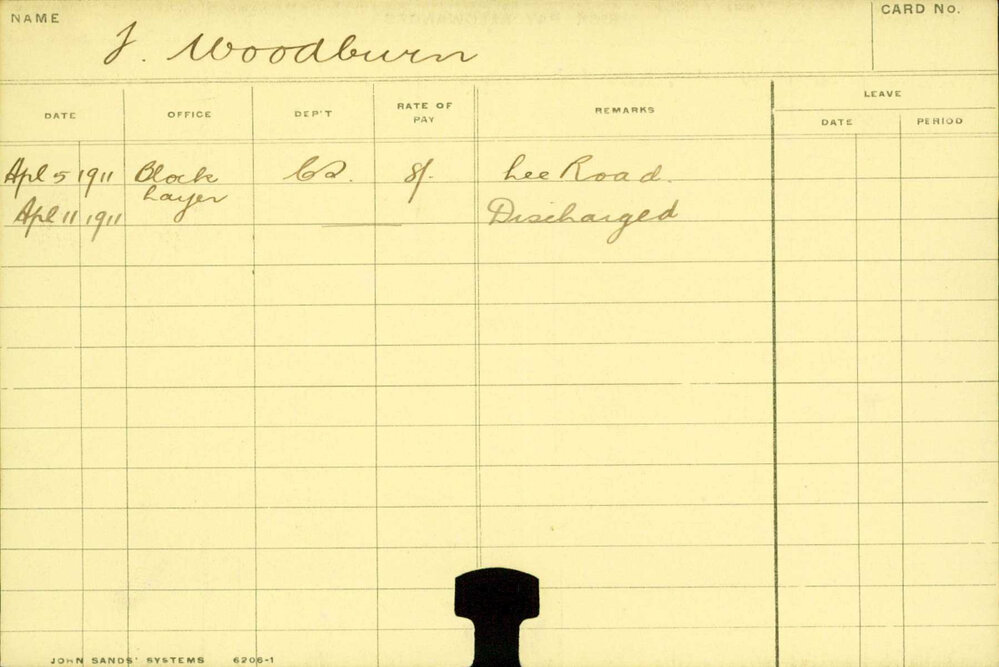 NAME
J. Woodburn
CARD No.
DATE OFFICE DEP'T RATE OF PAY REMARKS LEAVE
DATE PERIOD
Apl 5 1911 Block Layer 8/. Lee Road.
Apl 11 1911 Discharged
JOHN SANDS' SYSTEMS 6206-1